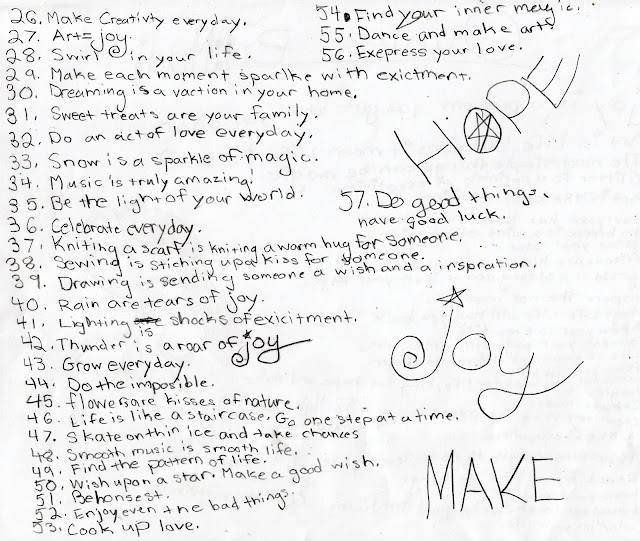 26. Make Creativty everyday.
27. Art = joy.
28. Swirl in your life.
29. Make each moment sparlke with exictment.
30. Dreaming is a vaction in your home.
31. Sweet treats are your family.
32. Do an act of love everyday.
33. Snow is a sparkle of magic.
34. Music is truly amazing!
35. Be the light of your world.
36. Celebrate everyday.
37. Kniting a scarf is kniting a warm hug for someone.
38. Sewing is stiching up a kiss for someone.
39. Drawing is sending someone a wish and a inspration.
40. Rain are tears of joy.
41. Lighting is shocks of exicitment.
42. Thunder is a roar of joy
43. Grow everyday.
44. Do the imposible.
45. flowers are kisses of nature.
46. Life is like a staircase. Go one step at a time.
47. Skate on thin ice and take chances
48. Smooth music is smooth life.
49. Find the pattern of life.
50. Wish upon a star. Make a good wish.
51. Be honsest.
52. Enjoy even the bad things.
53. Cook up love.
54. Find your inner magic.
55. Dance and make art.
56. Exepress your love.
HOPE
57. Do good things,
have good luck.
Joy
MAKE